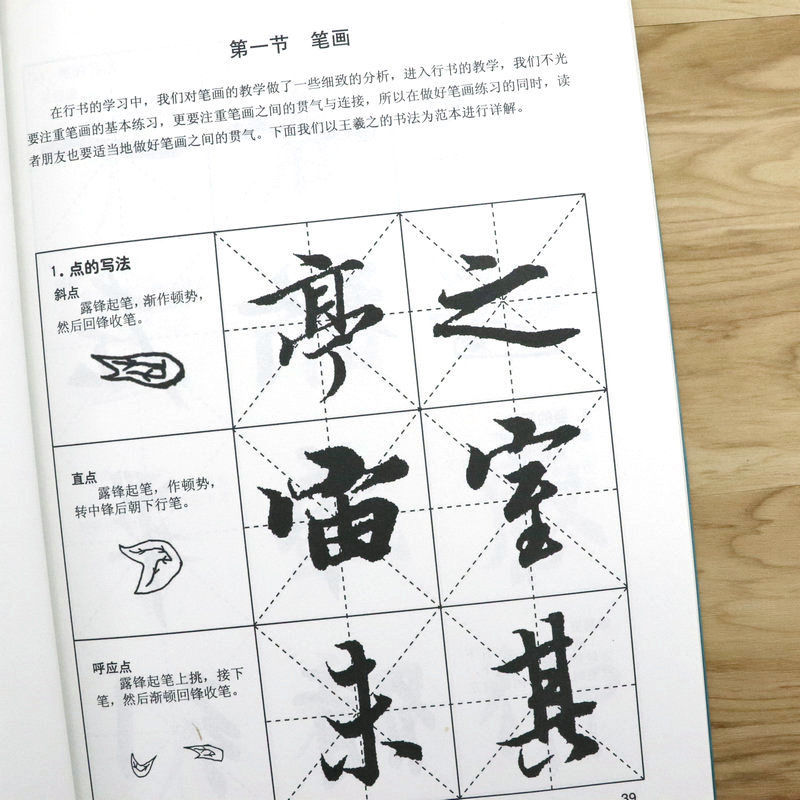 第一节 笔画
在行书的学习中，我们对笔画的教学做了一些细致的分析，进入行书的教学，我们不光
要注重笔画的基本练习，更要注重笔画之间的贯气与连接，所以在做好笔画练习的同时，读
者朋友也要适当地做好笔画之间的贯气。下面我们以王羲之的书法为范本进行详解。
1.点的写法
斜点
露锋起笔，渐作顿势，
然后回锋收笔。
亭 之
直点
露锋起笔，作顿势，
转中锋后朝下行笔。
宙 室
呼应点
露锋起笔上挑，接下
笔，然后渐顿回锋收笔。
未 其
39